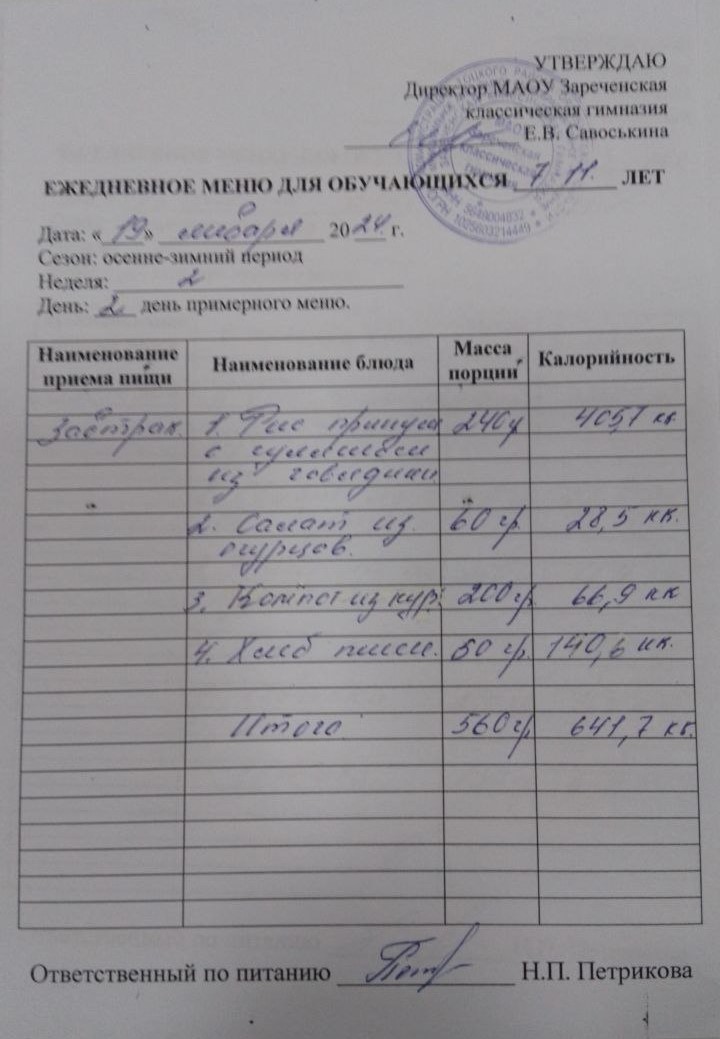 УТВЕРЖДАЮ
Директор МАОУ Зареченская
классическая гимназия
Е.В. Савоськина
ЕЖЕДНЕВНОЕ МЕНЮ ДЛЯ ОБУЧАЮЩИХСЯ 7-11 ЛЕТ
Дата: «19» января 2024 г.
Сезон: осенне-зимний период
Неделя: 2
День: 2 день примерного меню.
Наименование приема пищи Наименование блюда Масса порции Калорийность
Завтрак. 1. Рис припущ 240г 405,7 кк
с гуляшем
из говядины
2. Салат из 60 гр. 28,5 кк.
огурцов.
3. Компот из кур. 200 гр. 66,9 кк
4. Хлеб пшен. 60 гр. 140,6 кк.
Итого 560гр. 641,7 кк.
Ответственный по питанию Н.П. Петрикова